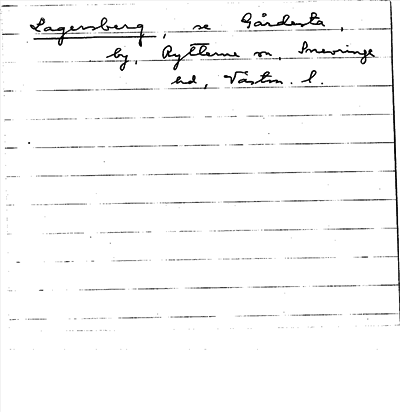 Lagersberg, se Gårdesta,
by, Rytterne sn, Snevringe
hd, Västm. l.